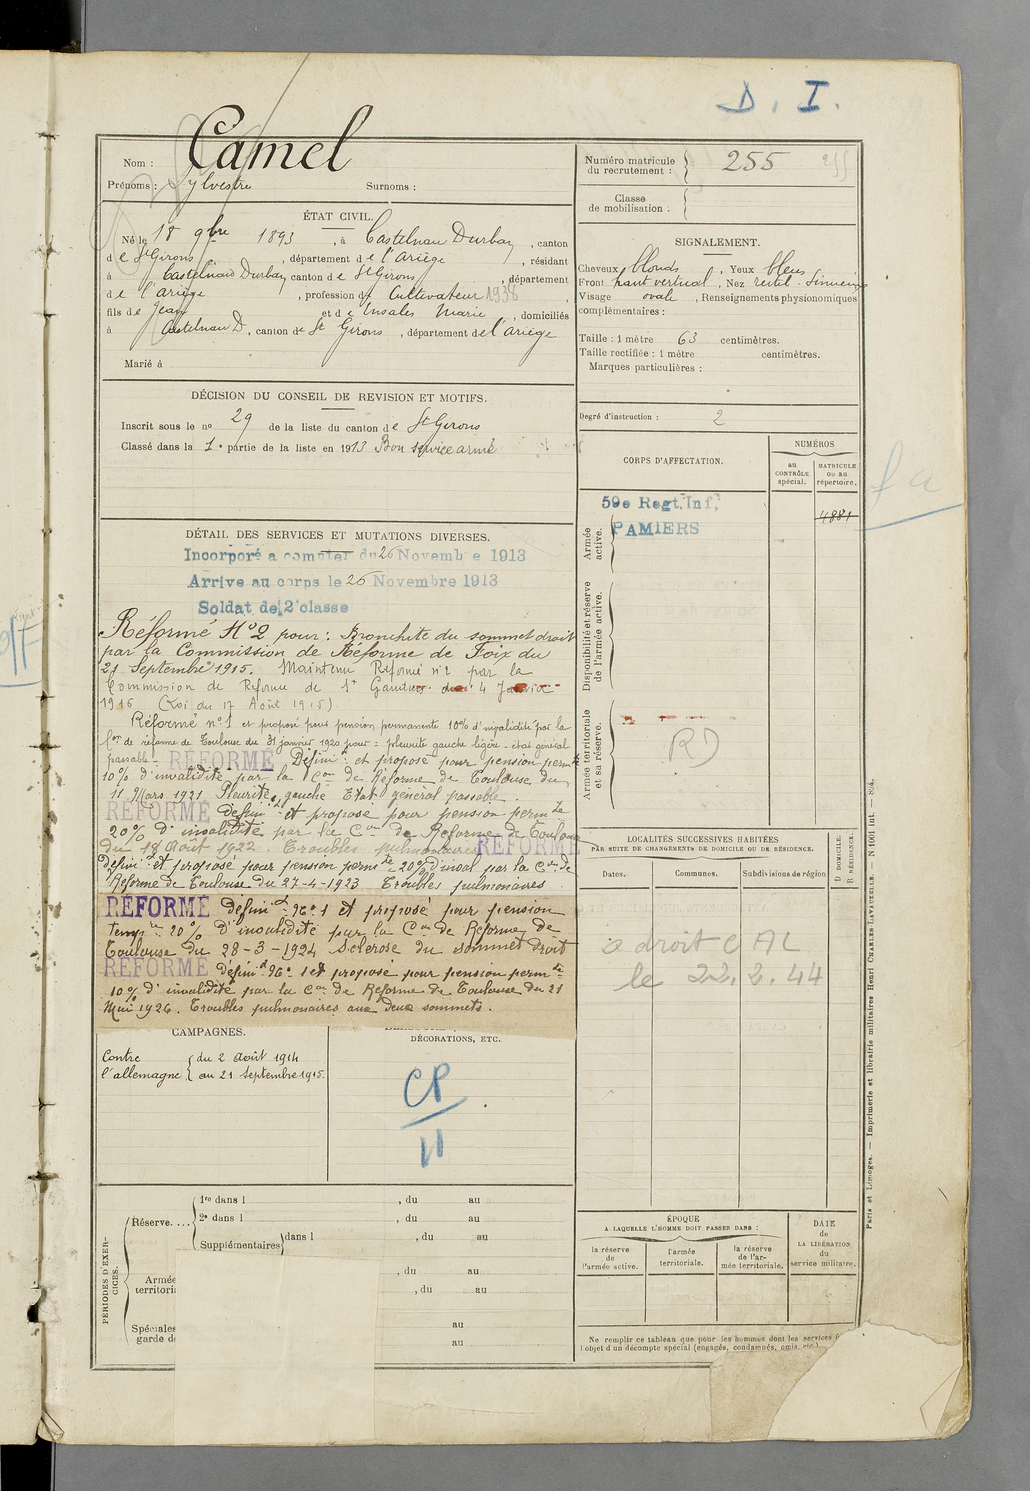 D. I.
Nom : Camel
Prénoms : Sylvestre Surnoms :
Numéro matricule du recrutement : 255
Classe de mobilisation :
ÉTAT CIVIL.
Né le 18 9bre 1893, à Castelnau Durban, canton
de St Girons, département de l'Ariège, résidant
à Castelnau Durban canton de St Girons, département
de l'ariège, profession de Cultivateur 1938
fils de Jean et de Insales Marie, domiciliés
à Castelnau D., canton de St Girons, département de l'ariège
Marié à
SIGNALEMENT.
Cheveux blonds, Yeux bleus
Front haut vertical, Nez rectil. Sinueux
Visage ovale, Renseignements physionomiques
complémentaires :
Taille : 1 mètre 63 centimètres.
Taille rectifiée : 1 mètre centimètres.
Marques particulières :
DÉCISION DU CONSEIL DE REVISION ET MOTIFS.
Inscrit sous le no 29 de la liste du canton de St Girons
Classé dans la 1e partie de la liste en 1913 Bon service armé
Degré d'instruction : 2
CORPS D'AFFECTATION.
NUMÉROS
au CONTRÔLE spécial.
MATRICULE ou au répertoire.
Armée active.
59e Regt. Inf.
PAMIERS
4881
Disponibilité et réserve de l'armée active.
Armée territoriale et sa réserve.
DÉTAIL DES SERVICES ET MUTATIONS DIVERSES.
Incorporé a compter du 26 Novembre 1913
Arrive au corps le 26 Novembre 1913
Soldat de 2e classe
Réformé No 2 pour : Bronchite du sommet droit
par la Commission de Réforme de Foix du
21 Septembre 1915. Maintenu Réformé n°2 par la
Commission de Réforme de St Gaudens du 4 Janvier
1916 (Loi du 17 Août 1915)
Réformé n°1 et proposé pour pension permanente 10% d'invalidité par la
Con de réforme de Toulouse du 31 janvier 1920 pour : pleurite gauche légère - état général
passable - RÉFORMÉ Définit et proposé pour pension permte
10% d'invalidité par la Con de Réforme de Toulouse du
11 Mars 1921 Pleurite gauche Etat général passable.
RÉFORMÉ définit et proposé pour pension permte
20% d'invalidité par la Con de Réforme de Toulouse
du 18 Août 1922. Troubles pulmonaires RÉFORMÉ
définit et proposé pour pension permte 20% d'inval par la Con de
Réforme de Toulouse du 27-4-1923 Troubles pulmonaires
RÉFORMÉ définit No 1 et proposé pour pension
tempre 20% d'invalidité par la Con de Réforme de
Toulouse du 28-3-1924 Sclérose du sommet droit
RÉFORMÉ définit No 1 et proposé pour pension permte
10% d'invalidité par la Con de Réforme de Toulouse du 21
Mai 1926. Troubles pulmonaires aux deux sommets.
LOCALITÉS SUCCESSIVES HABITÉES
PAR SUITE DE CHANGEMENTS DE DOMICILE OU DE RÉSIDENCE.
Dates. Communes. Subdivisions de région
D DOMICILE. R RÉSIDENCE.
a droit C AL
le 22.2.44
CAMPAGNES.
Contre l'allemagne
du 2 Août 1914
au 21 Septembre 1915.
DÉCORATIONS, ETC.
CP
11
PÉRIODES D'EXERCICES.
Réserve....
1re dans l , du au
2e dans l , du au
Supplémentaires dans l , du au
Armée
territoria
, du au
, du au
Spéciales
garde d
au
au
ÉPOQUE
A LAQUELLE L'HOMME DOIT PASSER DANS :
la réserve de l'armée active.
l'armée territoriale.
la réserve de l'armée territoriale.
DATE de LA LIBÉRATION du service militaire.
Ne remplir ce tableau que pour les hommes dont les services
l'objet d'un décompte spécial (engagés, condamnés, omis, etc.)
Paris et Limoges. — Imprimerie et librairie militaires Henri CHARLES-LAVAUZELLE. — N 1001 int. — 894.